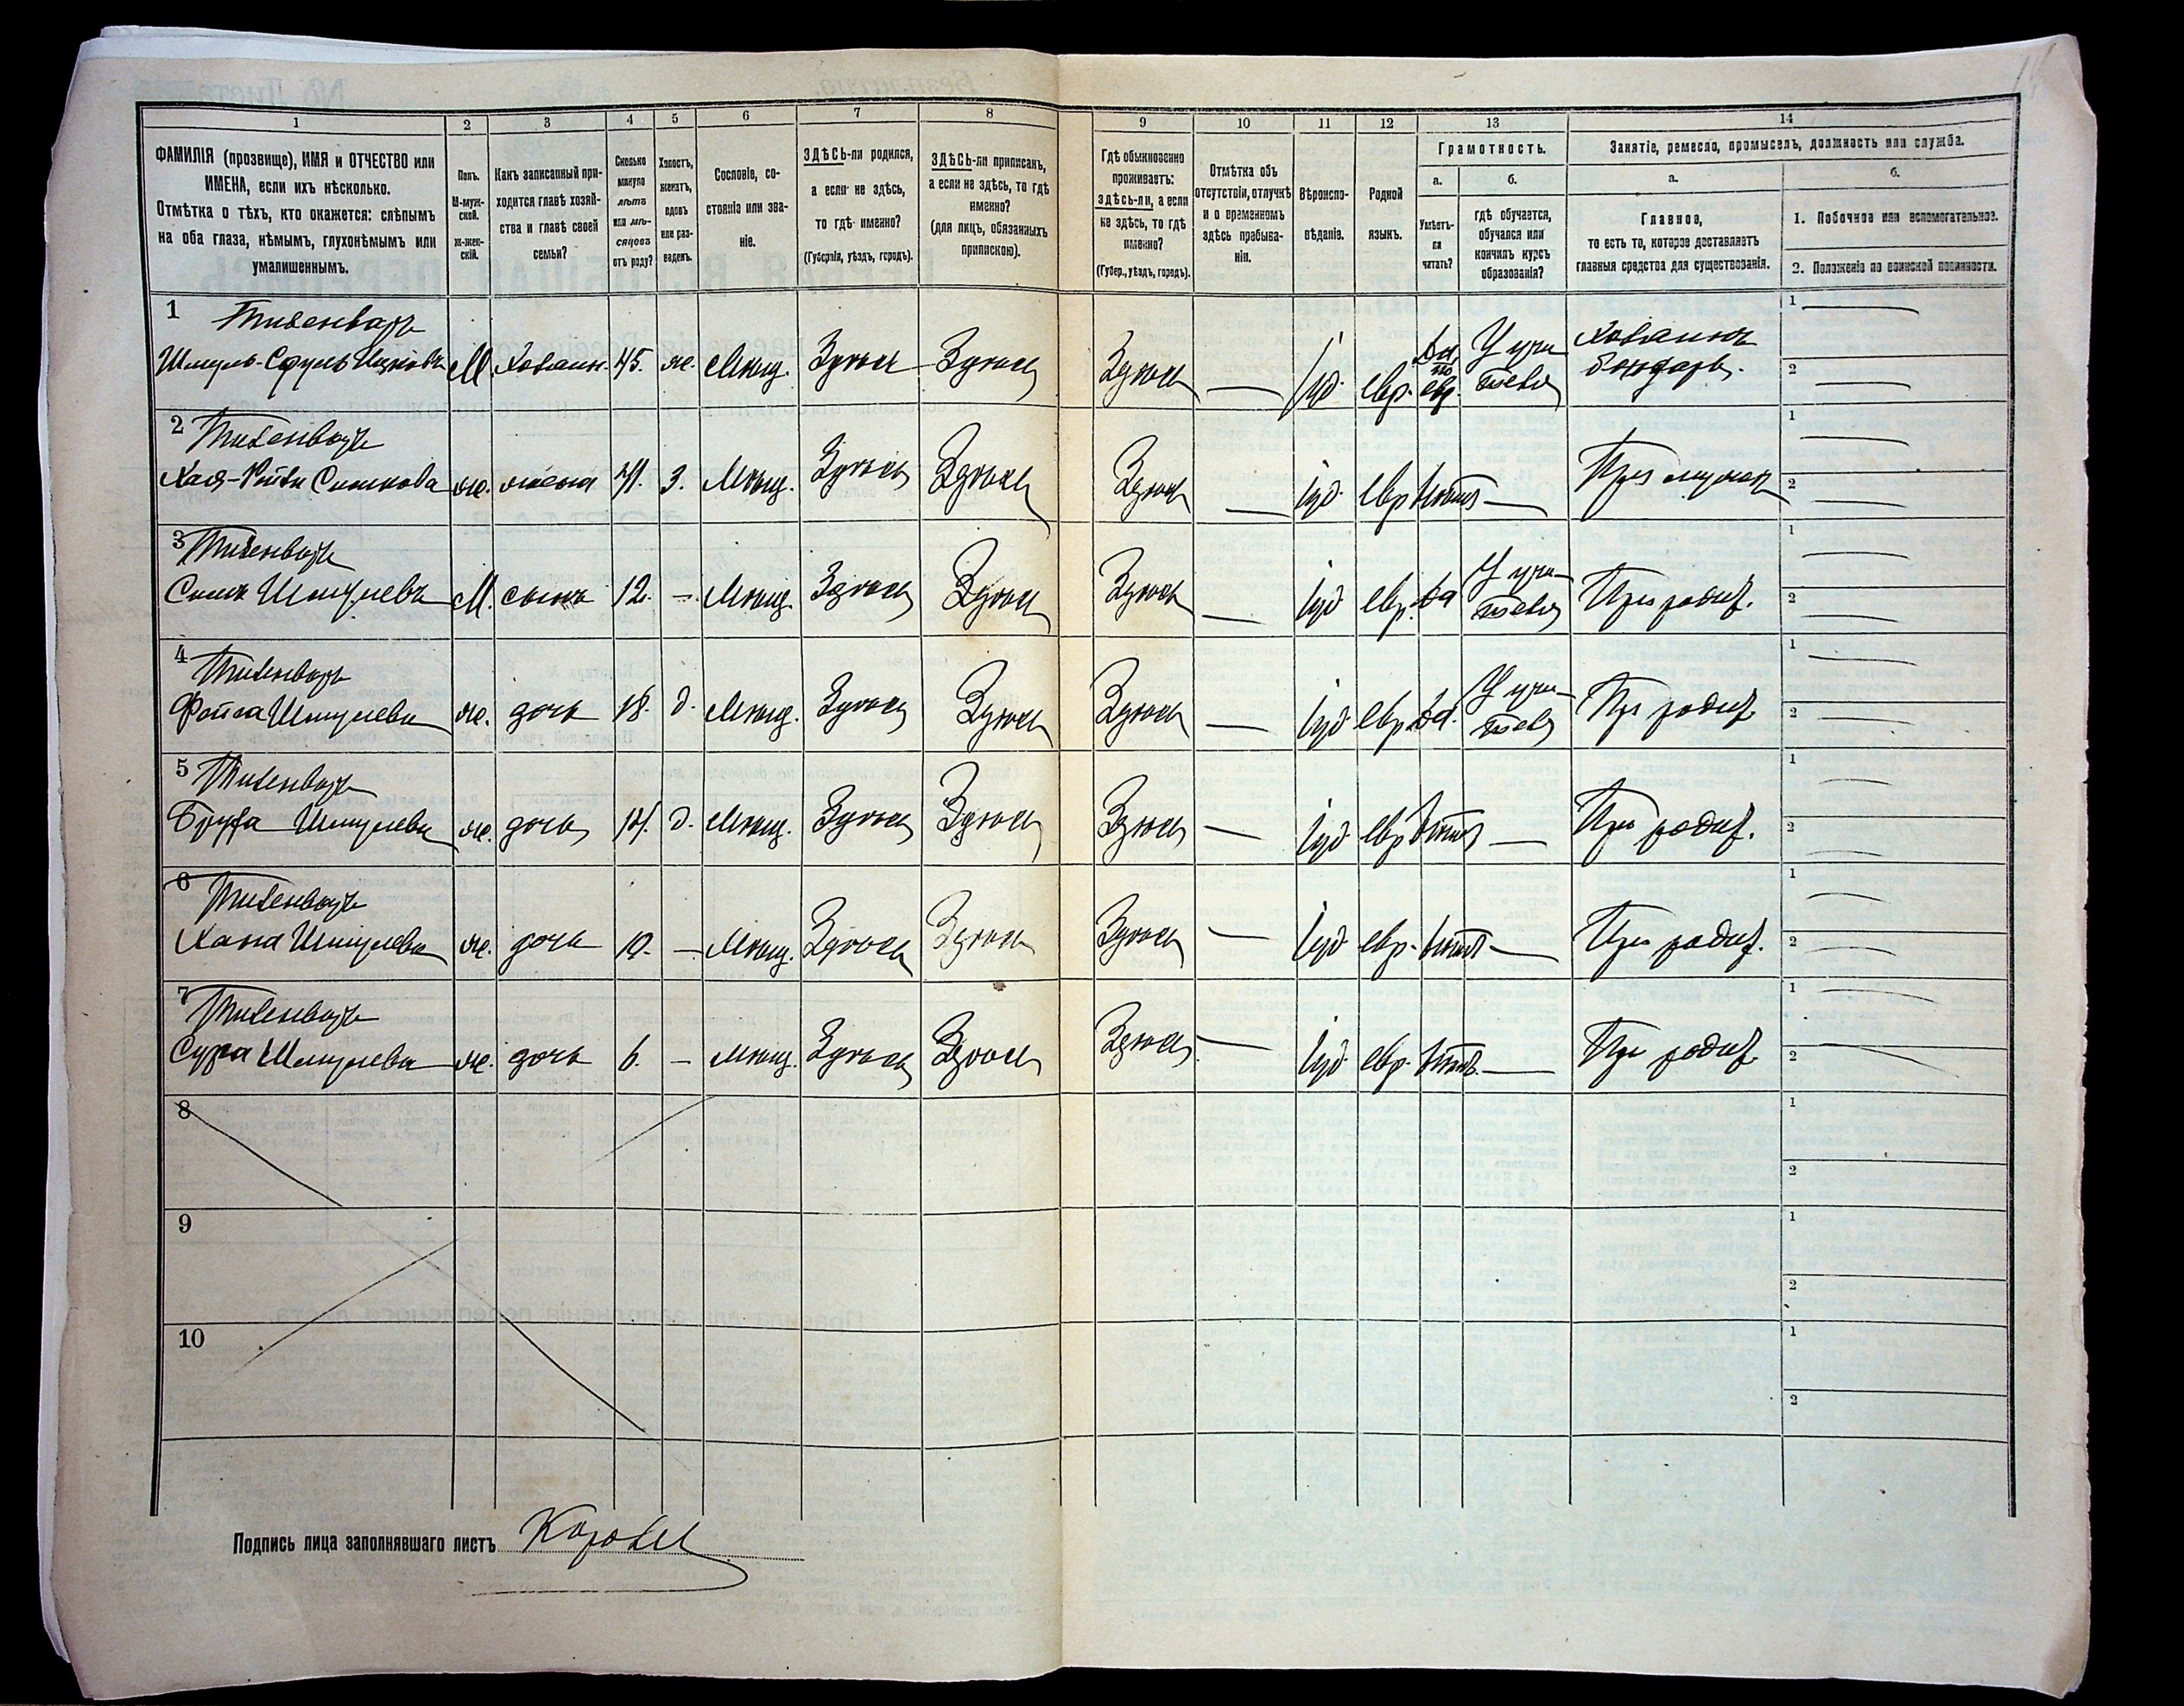 1
2
3
4
5
6
7
8
ФАМИЛІЯ (прозвище), ИМЯ и ОТЧЕСТВО или
ИМЕНА, если ихъ нѣсколько.
Отмѣтка о тѣхъ, кто окажется: слѣпымъ
на оба глаза, нѣмымъ, глухонѣмымъ или
умалишеннымъ.
Полъ.
М-муж-
ской.
ж-жен-
скій.
Какъ записанный при-
ходится главѣ хозяй-
ства и главѣ своей
семьи?
Сколько
минуло
лѣтъ
или мѣ-
сяцевъ
отъ роду?
Холостъ,
женатъ,
вдовъ
или раз-
веденъ.
Сословіе, со-
стояніе или зва-
ніе.
ЗДѢСЬ-ли родился,
а если не здѣсь,
то гдѣ именно?
(Губернія, уѣздъ, городъ).
ЗДѢСЬ-ли приписанъ,
а если не здѣсь, то гдѣ
именно?
(для лицъ, обязанныхъ
припискою).
9
10
11
12
13
14
Гдѣ обыкновенно
проживаетъ:
здѣсь-ли, а если
не здѣсь, то гдѣ
именно?
(Губер., уѣздъ, городъ).
Отмѣтка объ
отсутствіи, отлучкѣ
и о временномъ
здѣсь пребыва-
ніи.
Вѣроиспо-
вѣданіе.
Родной
языкъ.
Грамотность.
а.
б.
Умѣетъ-
ли
читать?
гдѣ обучается,
обучался или
кончилъ курсъ
образованія?
Занятіе, ремесло, промыселъ, должность или служба.
а.
б.
Главное,
то есть то, которое доставляетъ
главныя средства для существованія.
1. Побочное или вспомогательное.
2. Положеніе по воинской повинности.
1
М. Хозяин. 45. ж. Мѣщ. Здѣсь Здѣсь Здѣсь — Іуд. евр. Да по евр. У учителя Хозяинъ бондарь.
1 —
2 —
2
ж. жена 41. З. Мѣщ. Здѣсь Здѣсь Здѣсь — Іуд. евр. Нѣтъ — При мужѣ
1 —
2 —
3
М. сынъ 12. — Мѣщ. Здѣсь Здѣсь Здѣсь — Іуд. евр. Да У учителя При родит.
1 —
2 —
4
ж. дочь 18. д. Мѣщ. Здѣсь Здѣсь Здѣсь — Іуд. евр. Да. У учителя При родит.
1 —
2 —
5
ж. дочь 14. д. Мѣщ. Здѣсь Здѣсь Здѣсь — Іуд. евр. Нѣтъ — При родит.
1 —
2 —
6
Хана Шмулева ж. дочь 10. — Мѣщ. Здѣсь Здѣсь Здѣсь — Іуд. евр. Нѣтъ — При родит.
1 —
2 —
7
Сура Шмулева ж. дочь 6. — Мѣщ. Здѣсь Здѣсь Здѣсь — Іуд. евр. Нѣтъ. — При родит.
1 —
2 —
8
1
2
9
1
2
10
1
2
Подпись лица заполнявшаго листъ